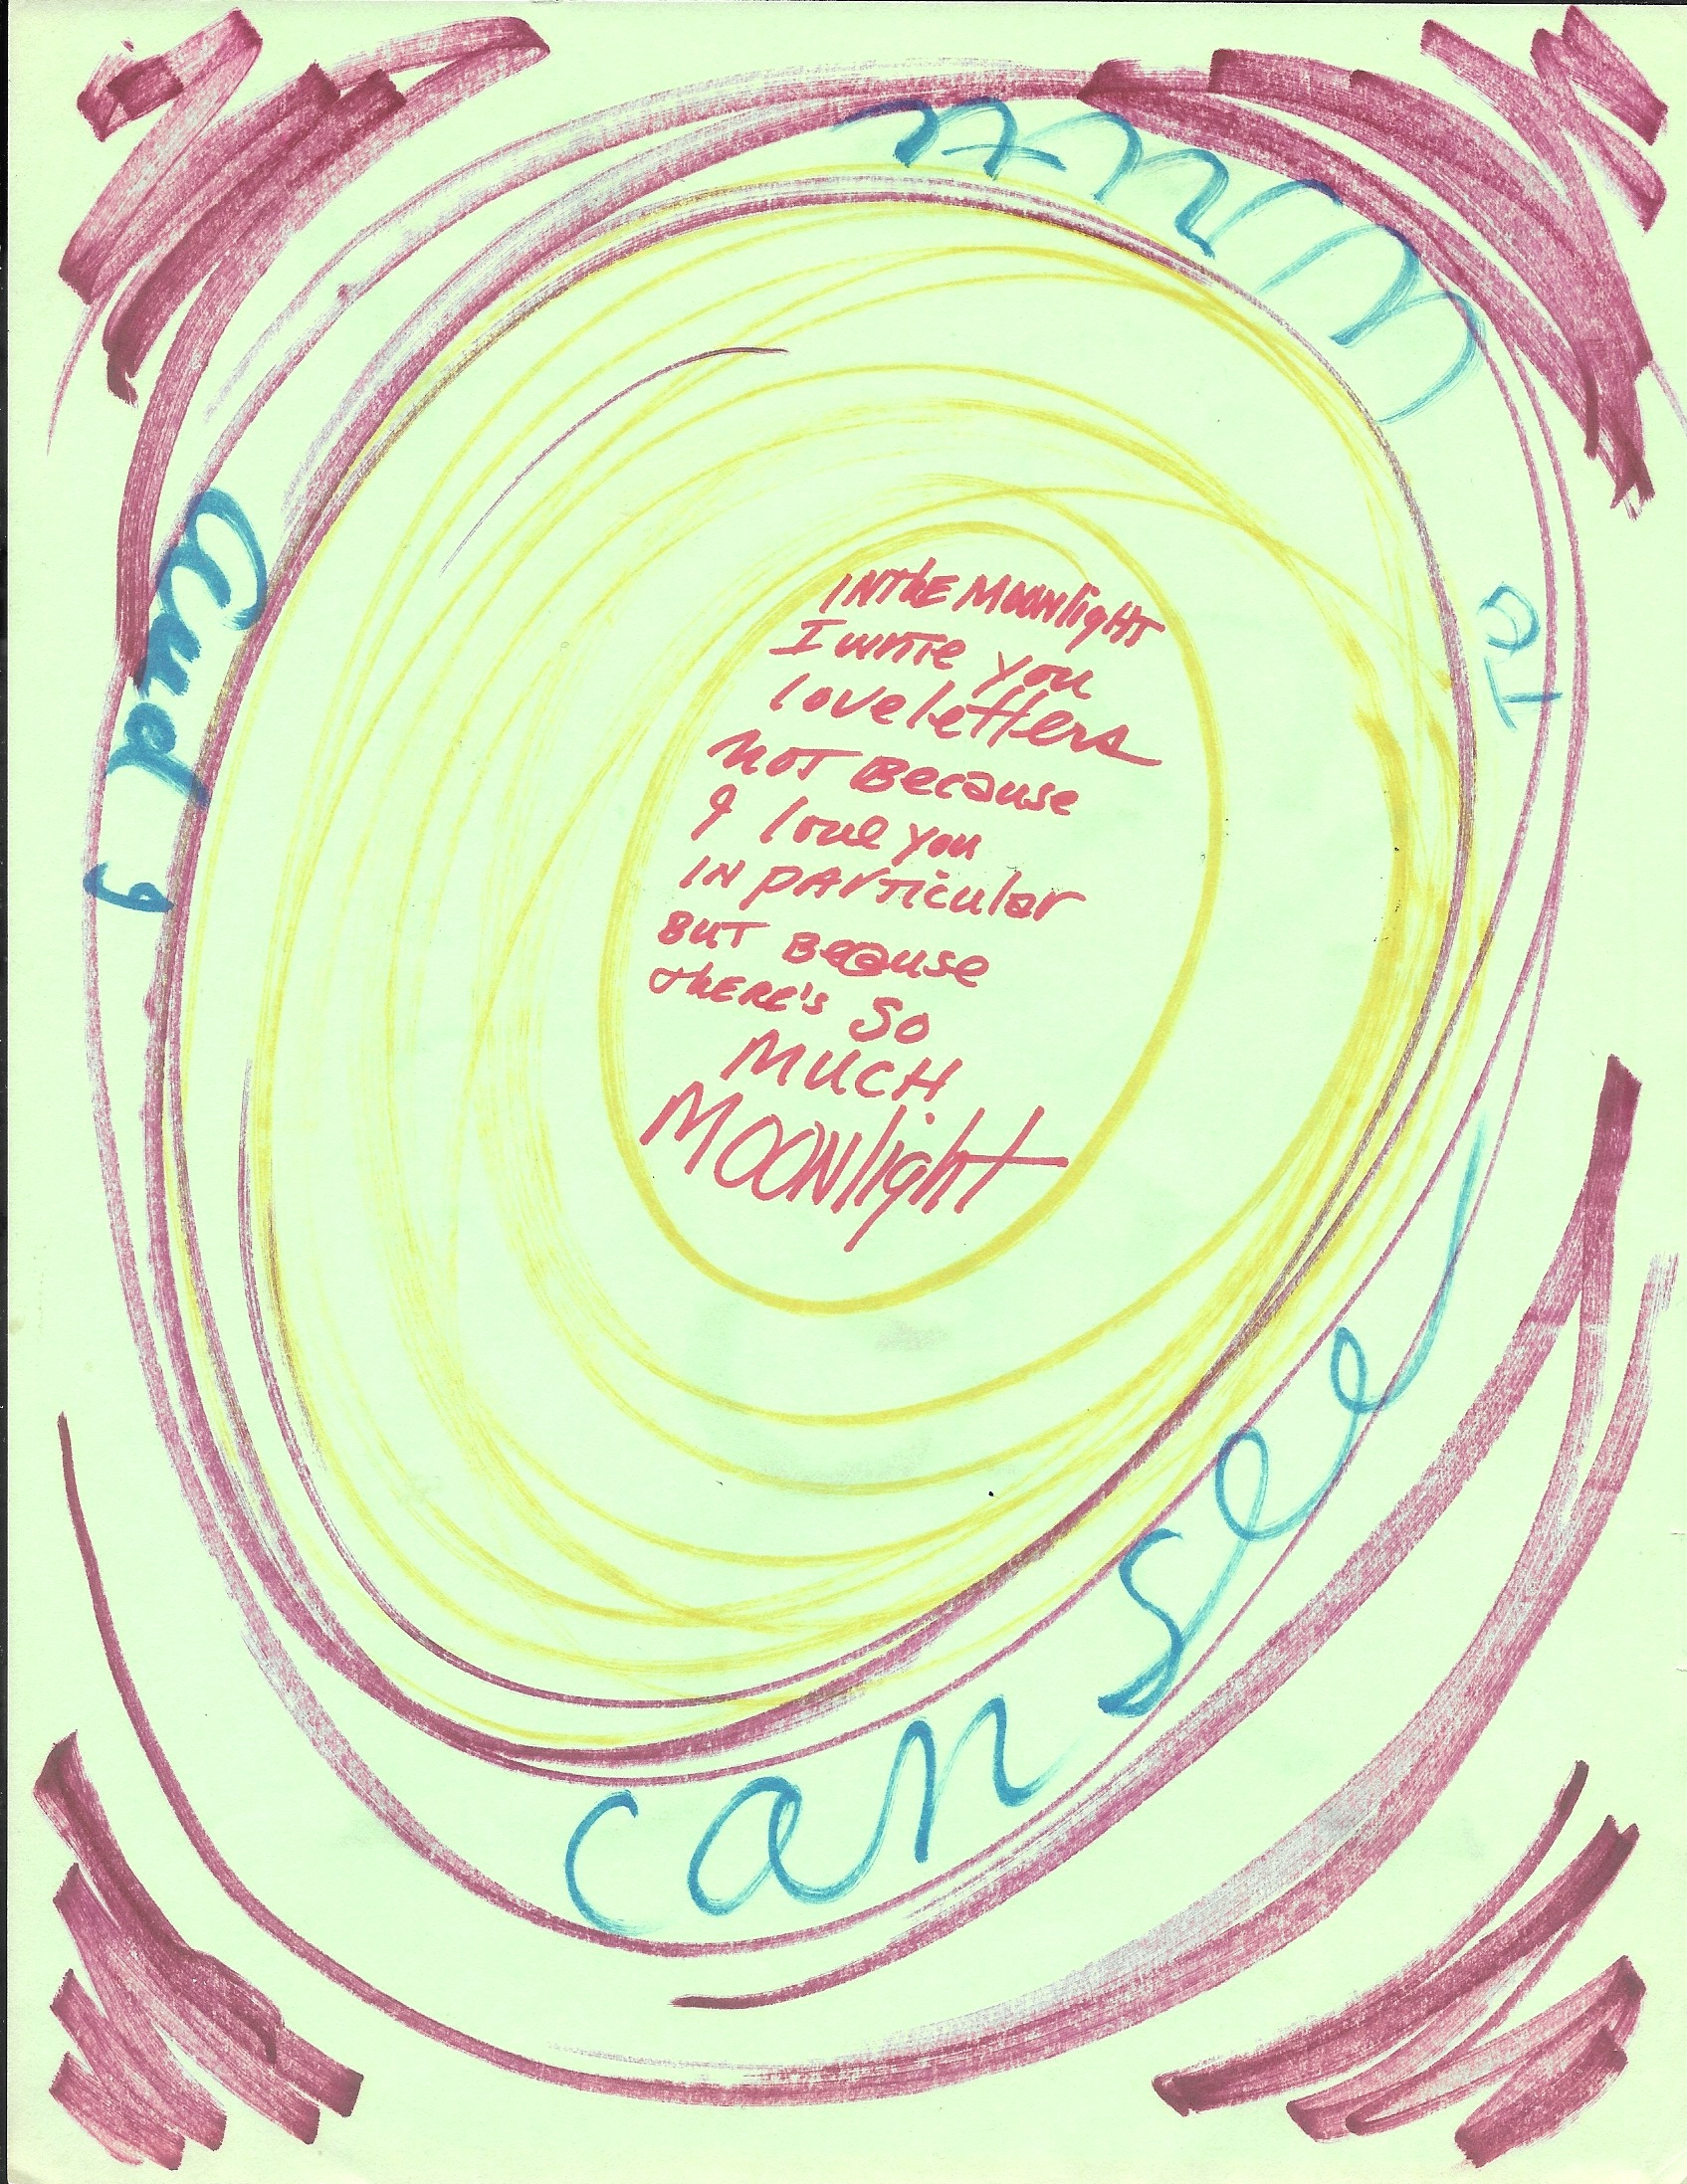 IN the Moonlight
I write you
love letters
not Because
I love you
IN pArticular
BUT Because
thERe's So
MUCH
MOONlight
and I
can see
To
write